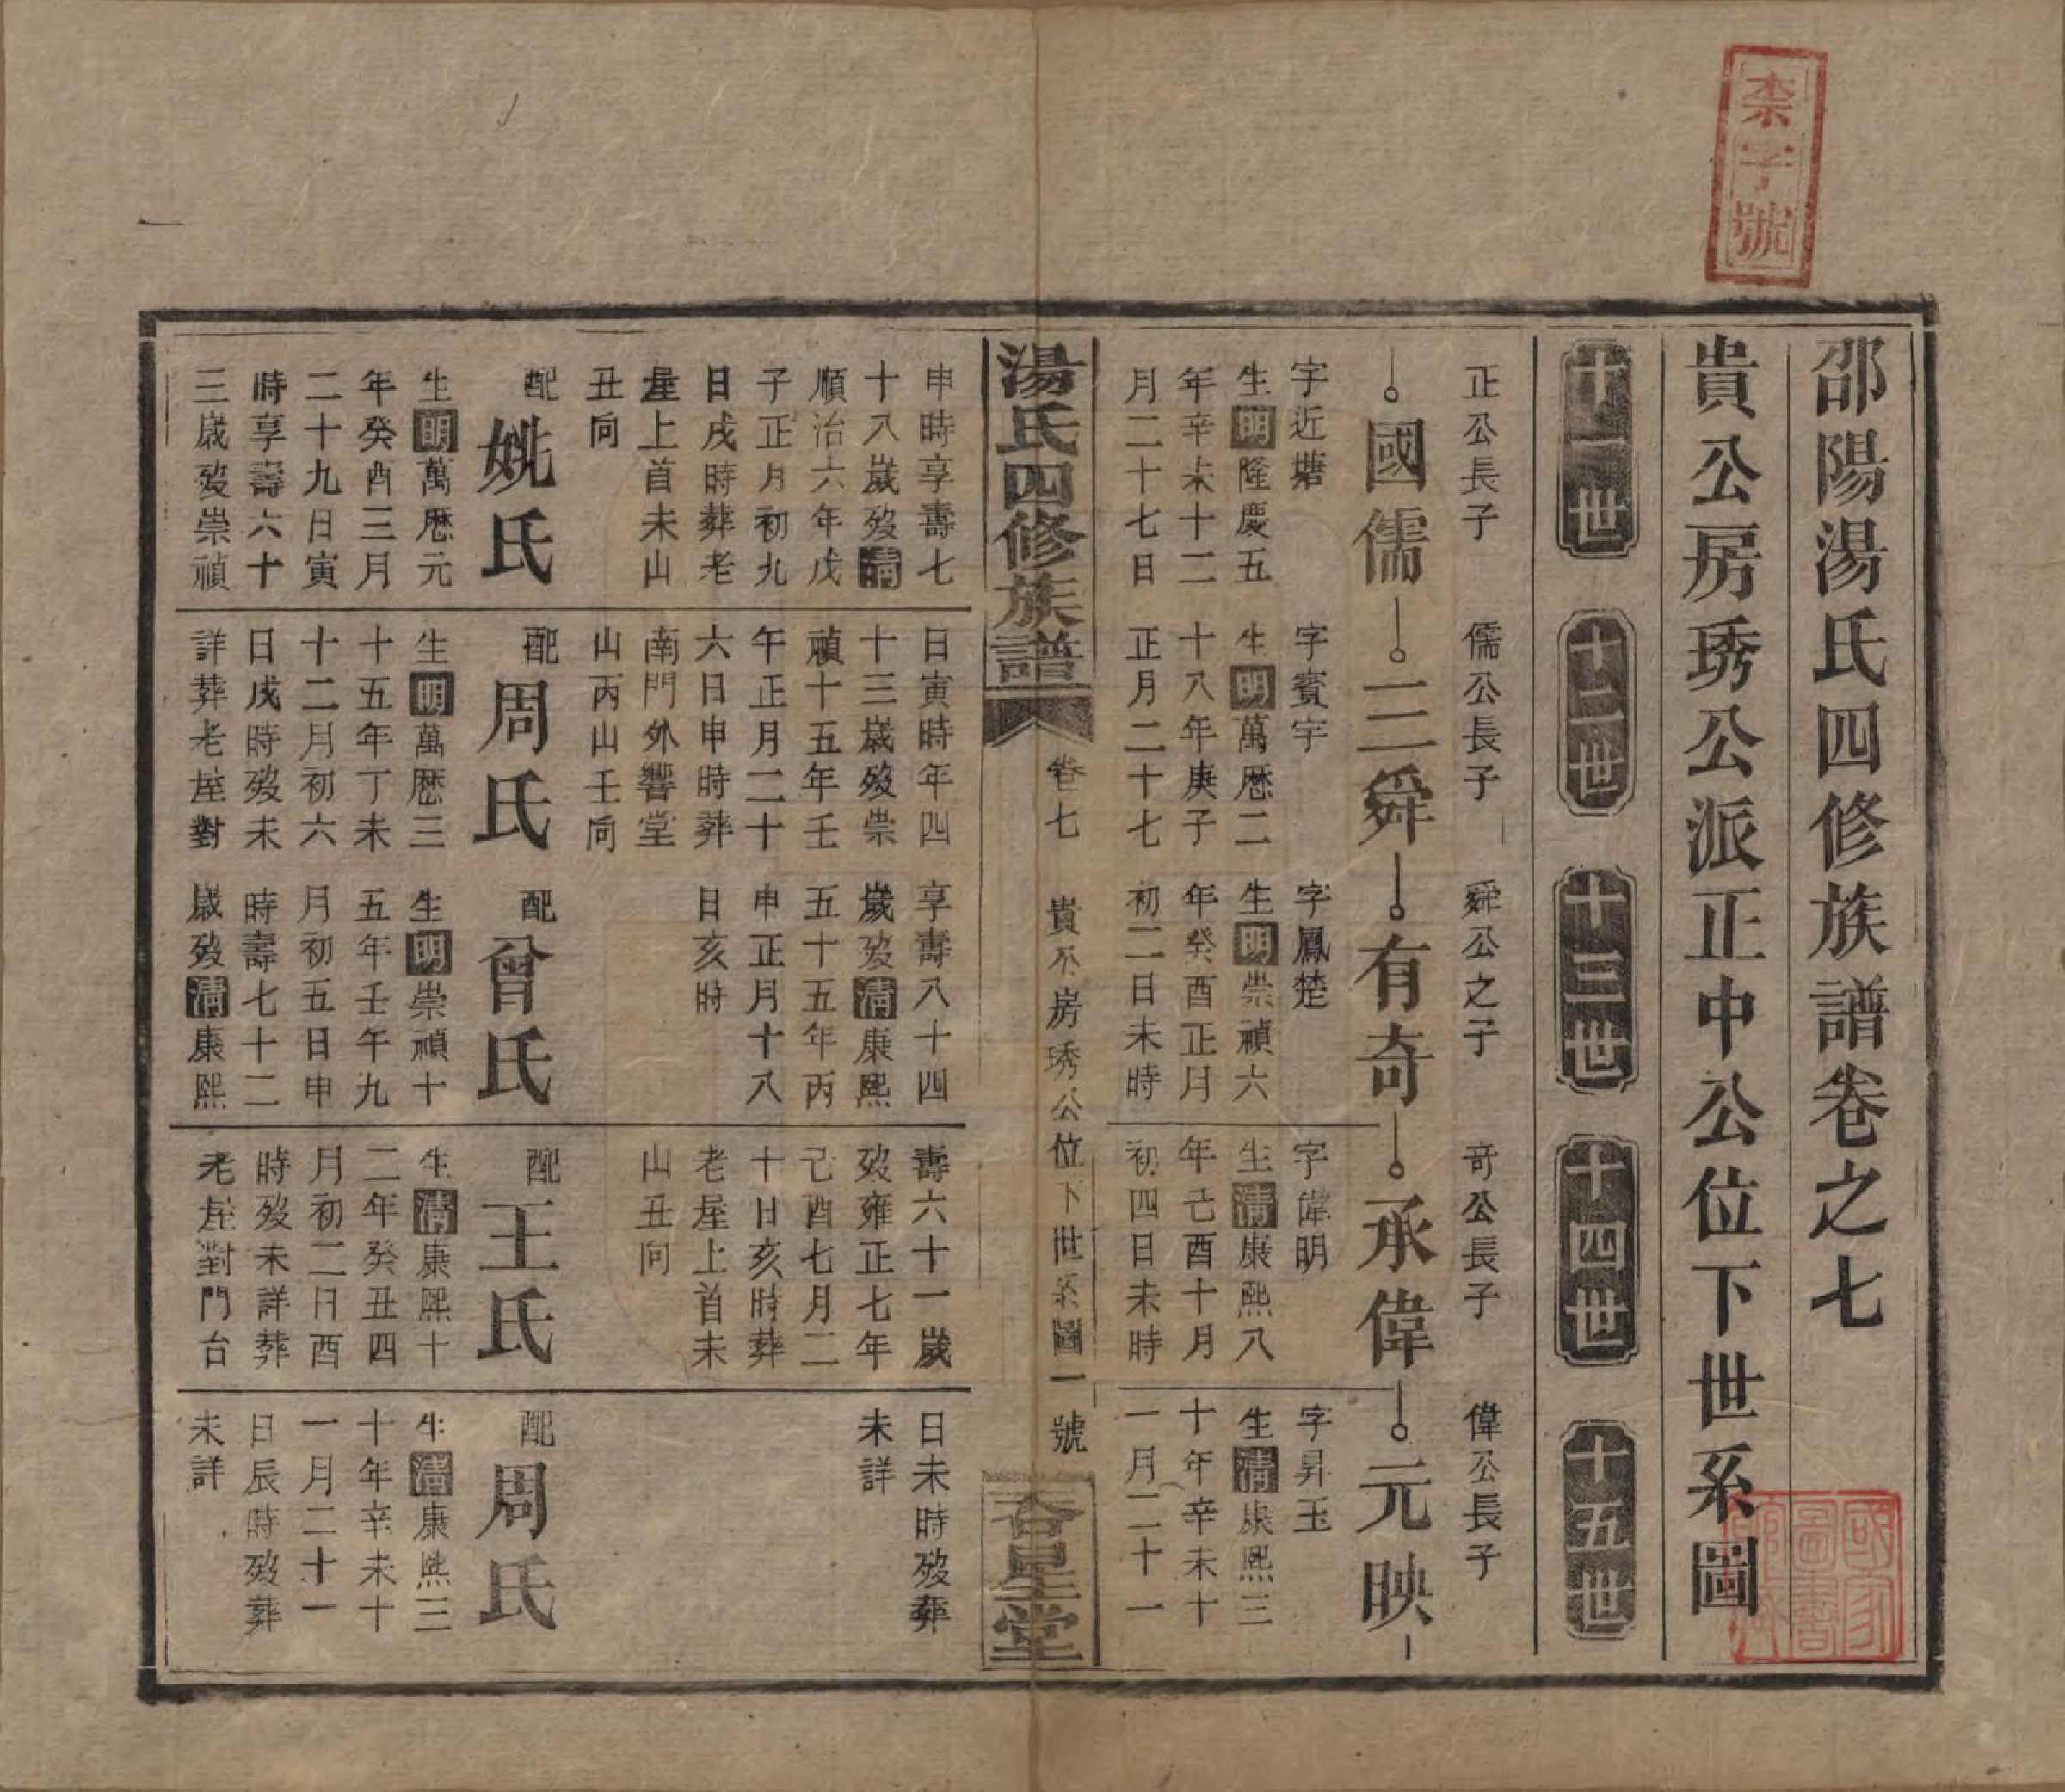 柰字號
邵陽湯氏四修族譜卷之七
貴公房琇公派正中公位下世系圖
十一世
十二世
十三世
十四世
十五世
正公長子
國儒
字近塘
生明隆慶五
年辛未十二
月二十七日
儒公長子
三舜
字賓宇
生明萬歷二
十八年庚子
正月二十七
舜公之子
有奇
字鳳楚
生明崇禎六
年癸酉正月
初二日未時
奇公長子
承偉
字偉明
生清康熙八
年己酉十月
初四日未時
偉公長子
元映
字昇玉
生清康熙三
十年辛未十
一月二十一
湯氏四修族譜
卷七
貴公房琇公位下世系圖一號
杏星堂
申時享壽七
十八歲歿清
順治六年戊
子正月初九
日戌時葬老
屋上首未山
丑向
配
姚氏
生明萬歷元
年癸酉三月
二十九日寅
時享壽六十
三歲歿崇禎
日寅時年四
十三歲歿崇
禎十五年壬
午正月二十
六日申時葬
南門外響堂
山丙山壬向
配
周氏
生明萬歷三
十五年丁未
十二月初六
日戌時歿未
詳葬老屋對
享壽八十四
歲歿清康熙
五十五年丙
申正月十八
日亥時
配
曾氏
生明崇禎十
五年壬午九
月初五日申
時壽七十二
歲歿清康熙
壽六十一歲
歿雍正七年
己酉七月二
十日亥時葬
老屋上首未
山丑向
配
王氏
生清康熙十
二年癸丑四
月初二日酉
時歿未詳葬
老屋對門台
日未時歿葬
未詳
配
周氏
生清康熙三
十年辛未十
一月二十一
日辰時歿葬
未詳